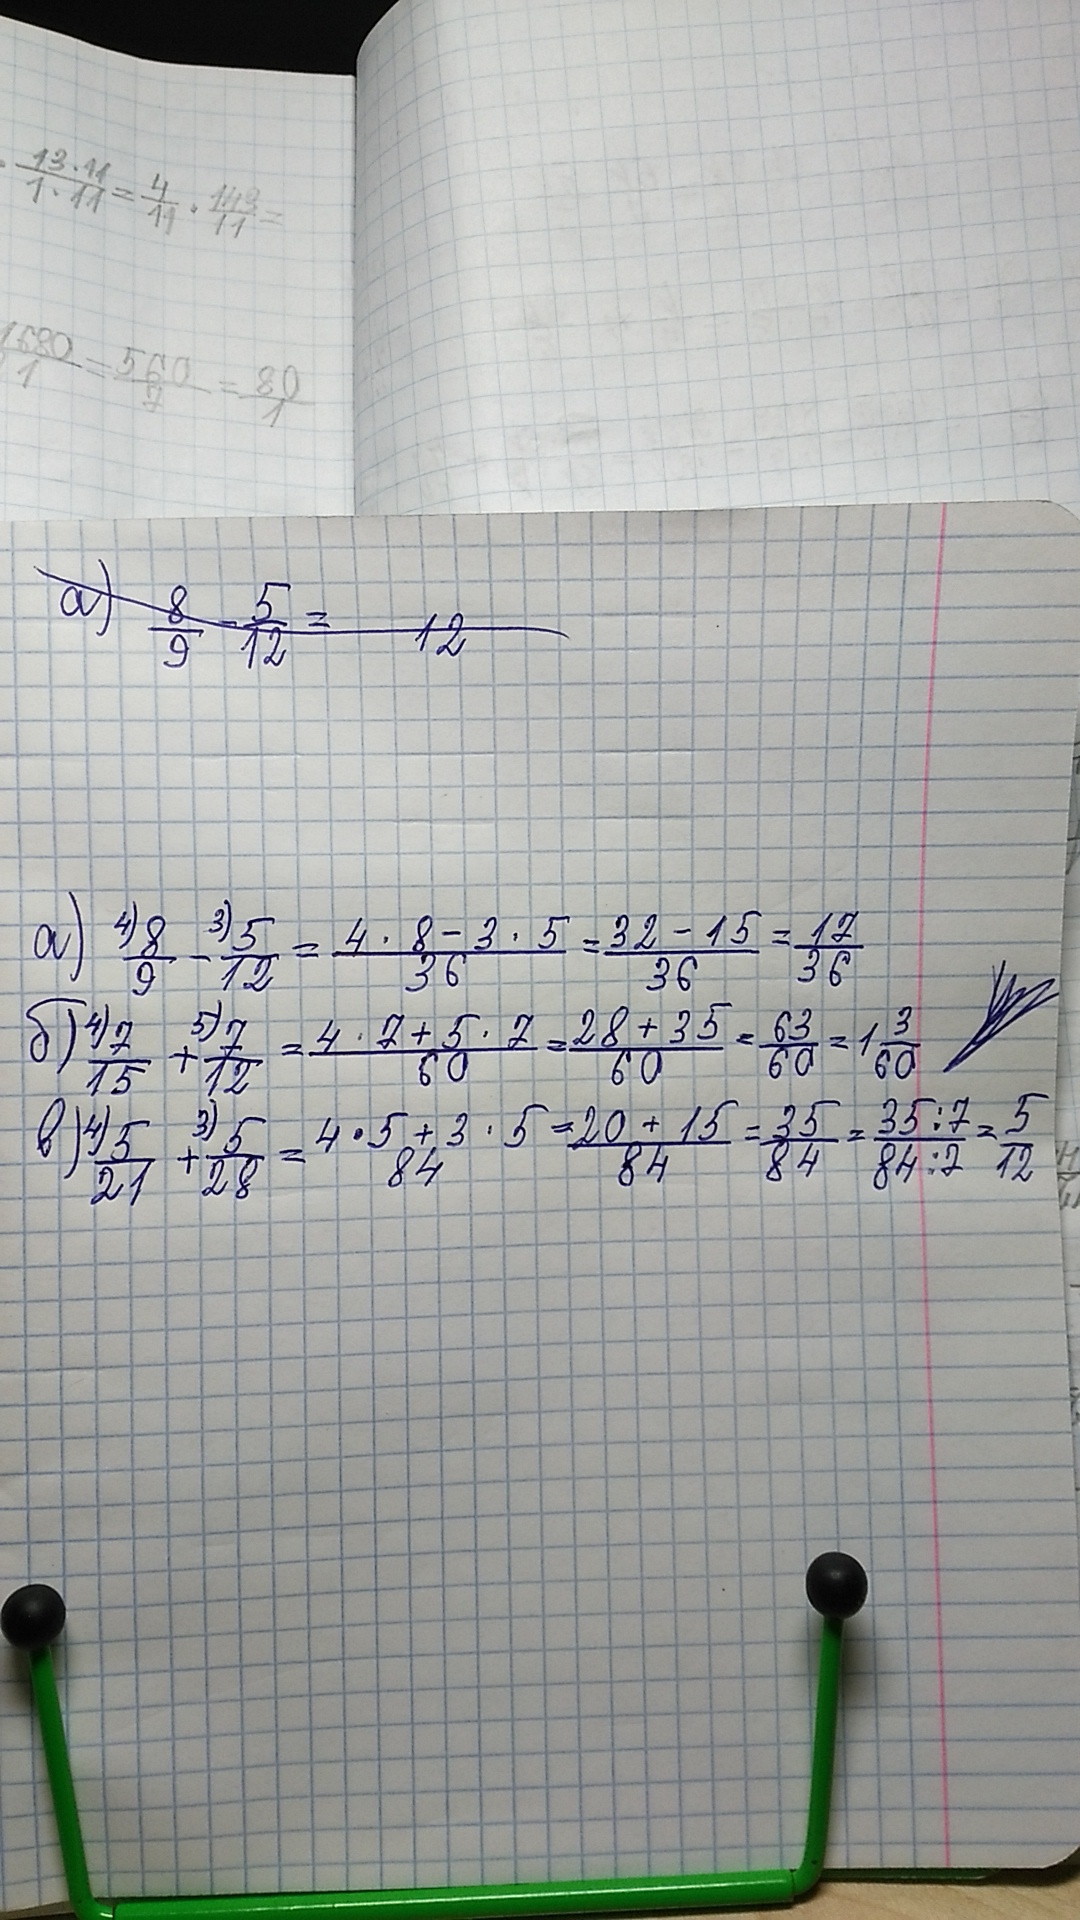 · 13·11/1·11 = 4/11 · 143/11 =
1680/1 = 560/7 = 80/1
а) 8/9 - 5/12 = 12
а) 4) 8/9 - 3) 5/12 = 4·8-3·5/36 = 32-15/36 = 17/36
б) 4) 7/15 + 5) 7/12 = 4·7+5·7/60 = 28+35/60 = 63/60 = 1 3/60
в) 4) 5/21 + 3) 5/28 = 4·5+3·5/84 = 20+15/84 = 35/84 = 35:7/84:7 = 5/12